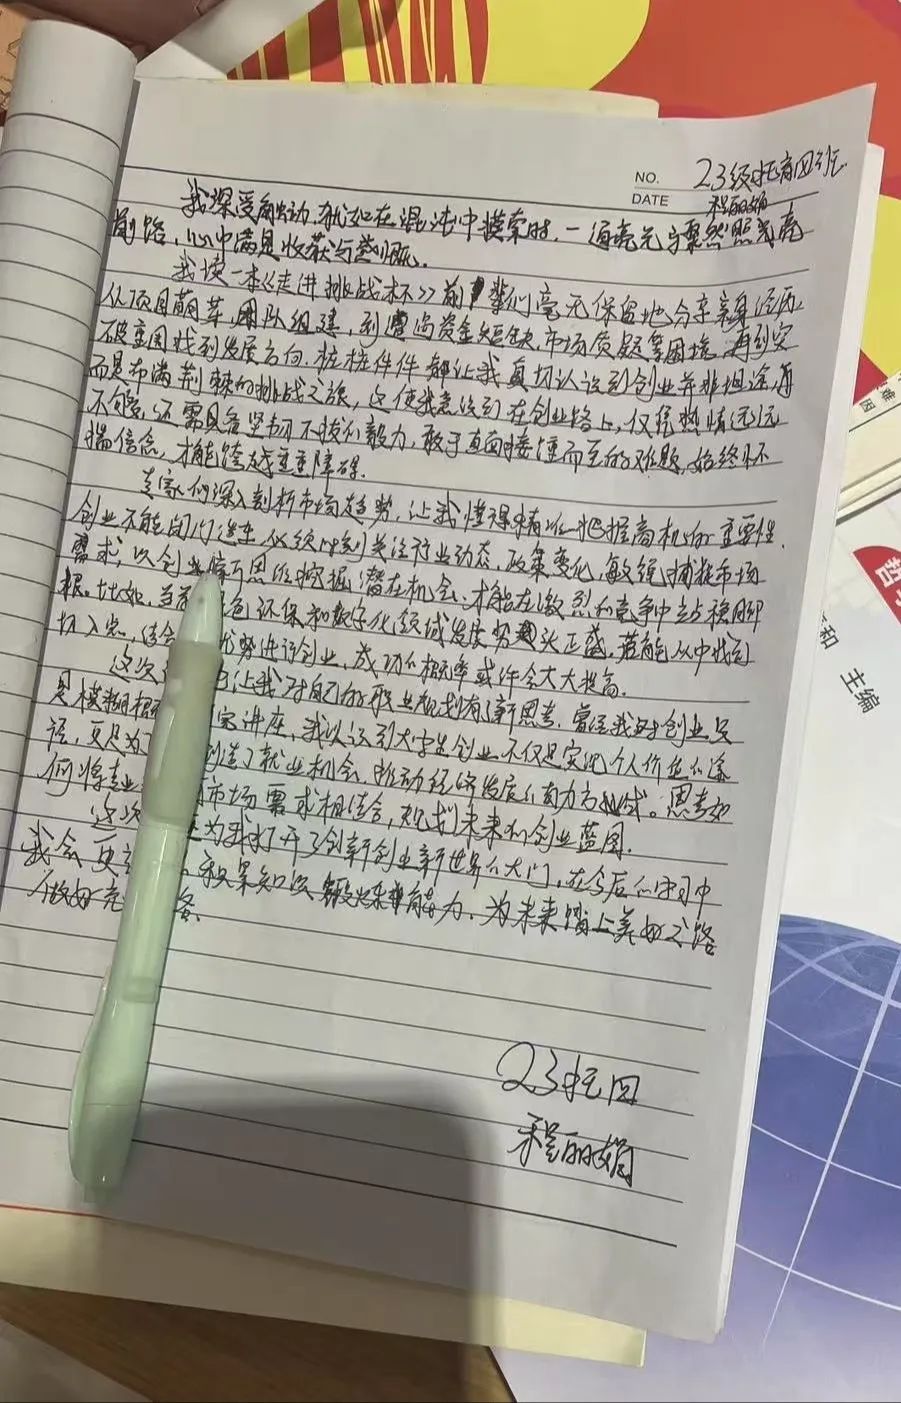 NO. 23级托育四班
DATE 程丽娟
我深受触动,就如在混沌中摸索时,一道亮光骤然照亮
前路,心中满是收获与感慨。
我读一本《走进挑战杯》前辈们毫无保留地分享亲身经历
从项目萌芽,团队组建,到遭遇资金短缺市场质疑等困境,再到突
破重围找到发展方向,桩桩件件都让我真切认识到创业并非坦途,
而是布满荆棘的挑战之旅,这使我意识到在创业路上,仅凭热情远远
不够,还需具备坚韧不拔的毅力,敢于直面接踵而至的难题,始终怀
揣信念,才能跨越重重障碍。
专家们深入剖析市场趋势,让我懂得精准把握商机的重要性,
创业不能闭门造车,必须时刻关注行业动态,政策变化,敏锐捕捉市场
需求,以创新思维挖掘潜在机会,才能在激烈的竞争中站稳脚
跟。比如,当前 色环保和数字化领域发展势头正盛,若能从中找到
切入点,结合 优势进行创业,成功的概率或许会大大提高。
这次 让我对自己的职业规划有了新思考,曾经我对创业只
是模糊概 讲座,我认识到大学生创业不仅是实现个人价值的途
径,更是为 创造了就业机会,推动经济发展的 。思考如
何将专业 市场需求相结合,规划未来的创业蓝图。
这次 为我打开了创新创业新世界的大门,在今后的学习中
我会更 积累知识,锻炼 能力,为未来踏上 之路
做好充 备
23托四
程丽娟
主编
和